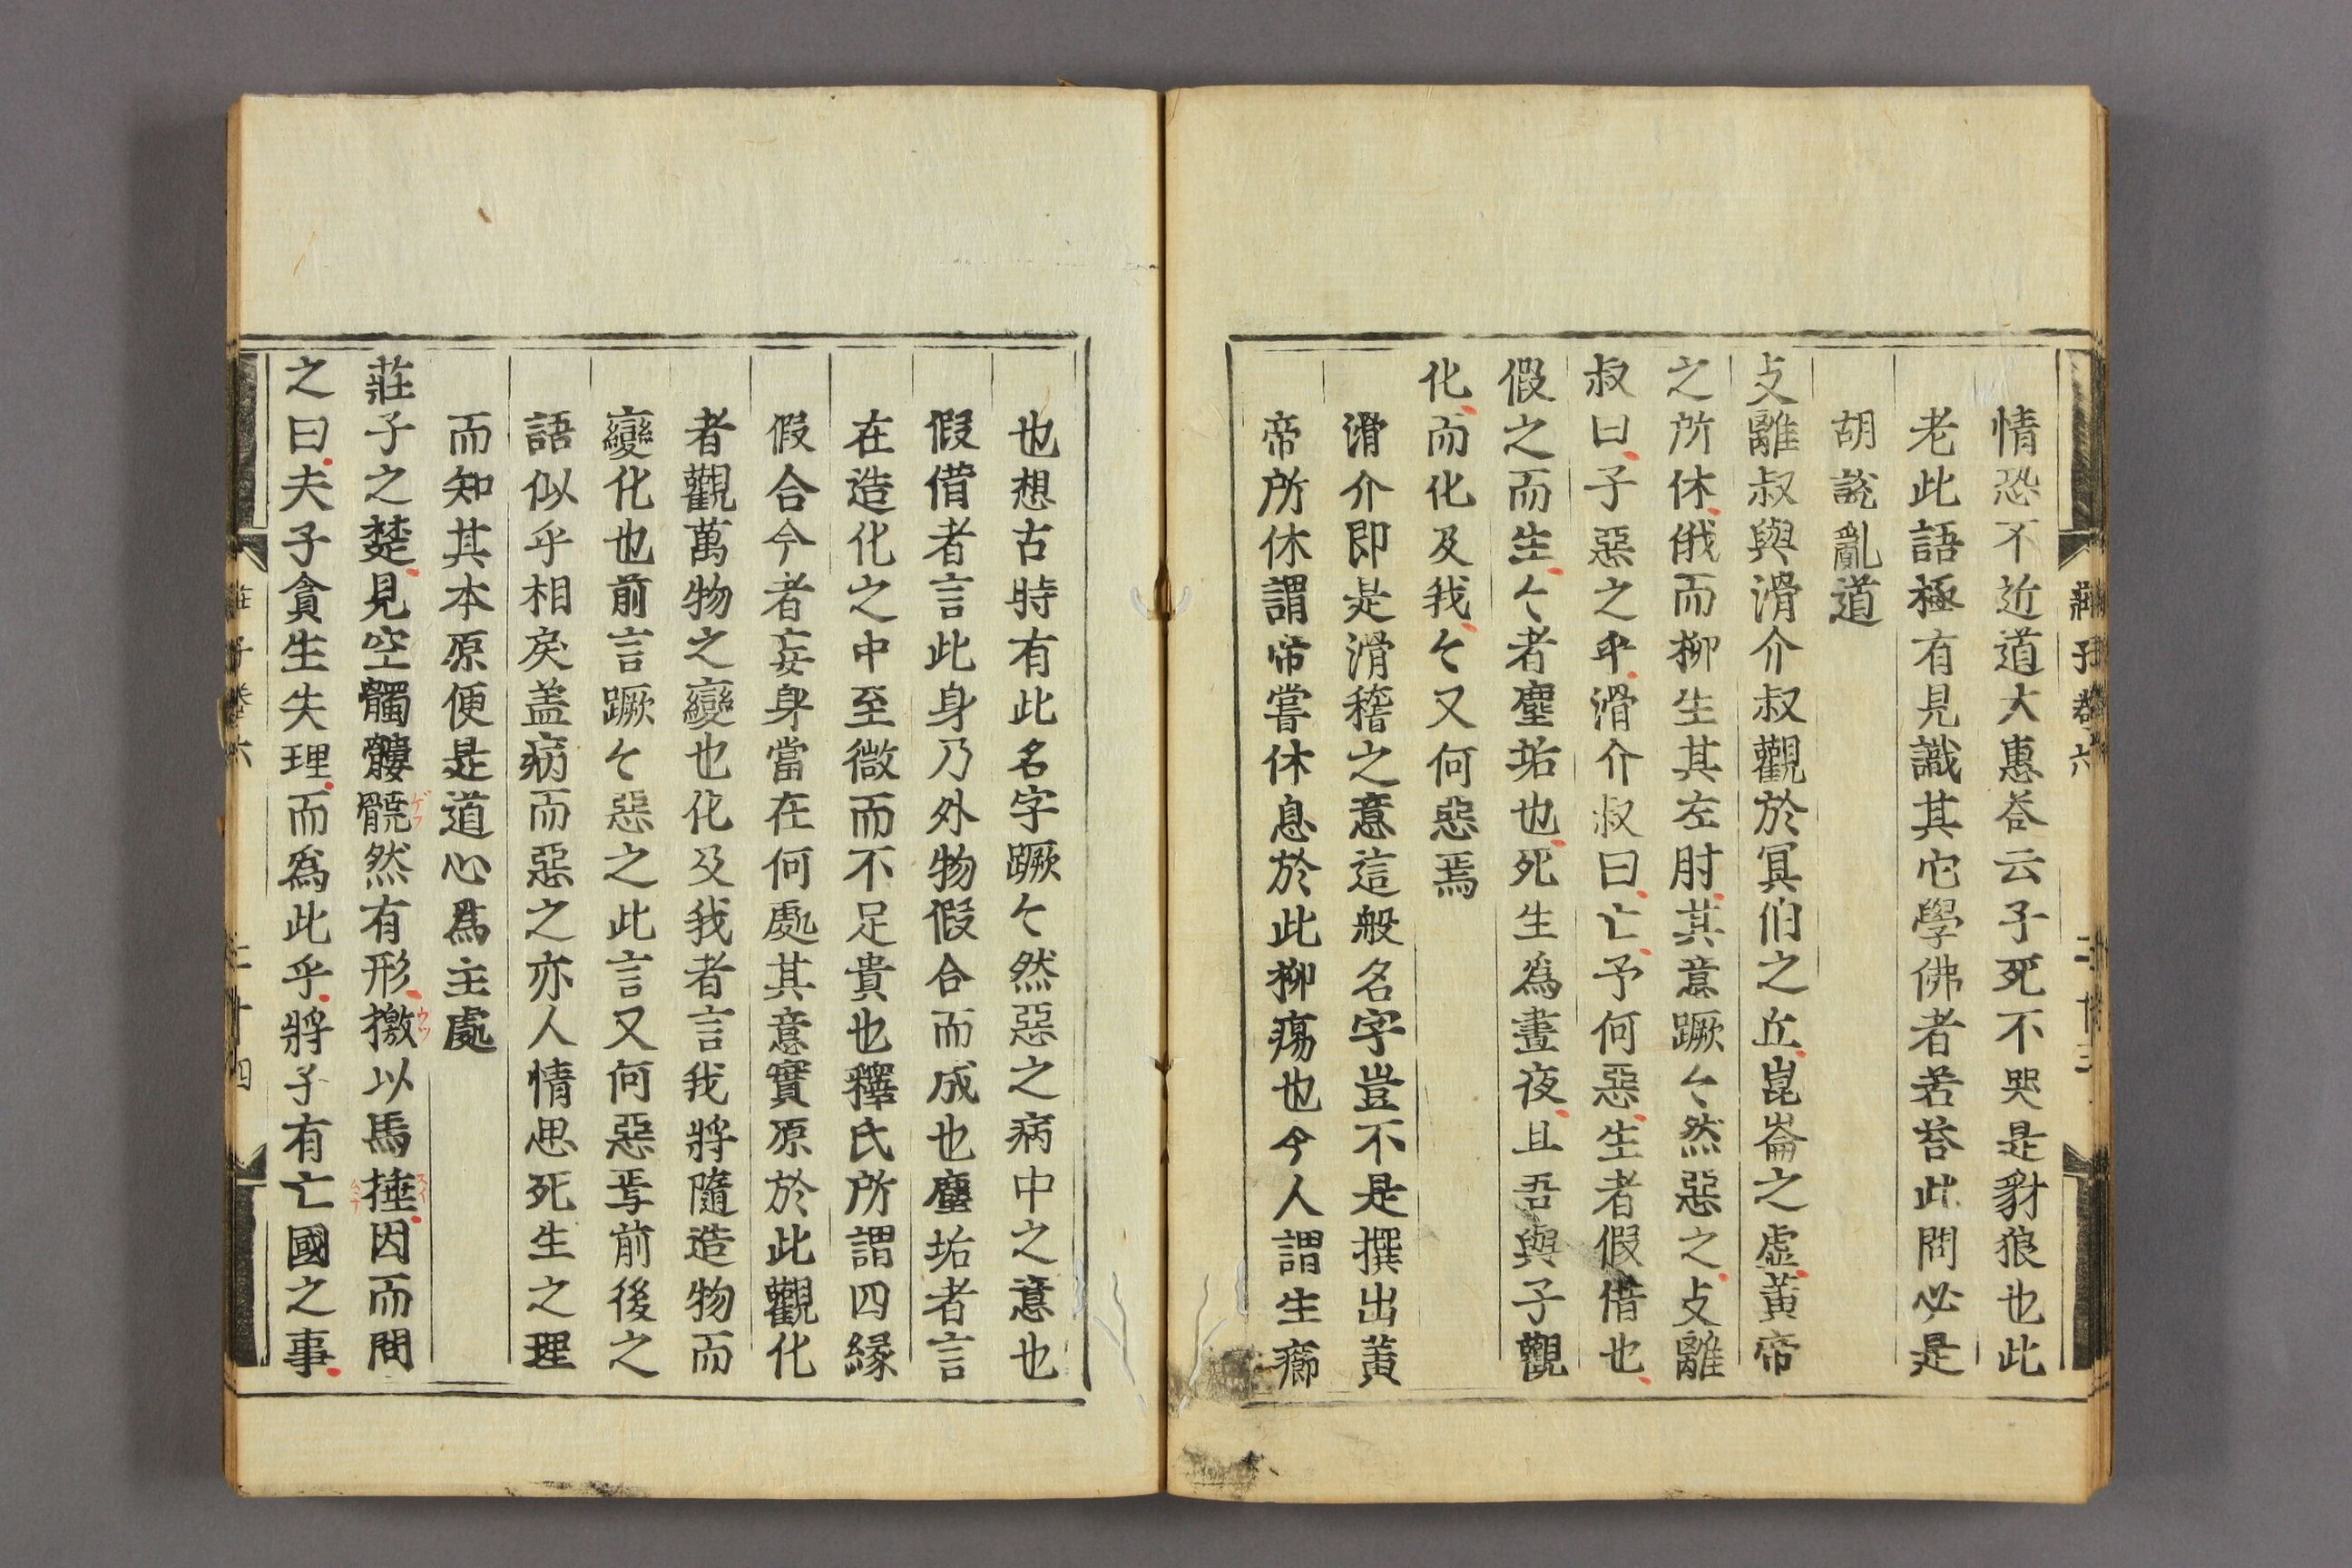 情恐不近道大惠荅云子死不哭是豺狼也此
老此語極有見識其它學佛者若荅此問必是
胡說亂道
攴離叔與滑介叔觀於冥伯之丘崑崙之虛黃帝
之所休俄而柳生其左肘其意蹶〻然惡之攴離
叔曰子惡之乎滑介叔曰亡予何惡生者假借也
假之而生〻者塵垢也死生爲晝夜且吾與子觀
化而化及我〻又何惡焉
滑介即是滑稽之意這般名字豈不是撰出黃
帝所休謂帝嘗休息於此柳瘍也今人謂生癤
也想古時有此名字蹶〻然惡之病中之意也
假借者言此身乃外物假合而成也塵垢者言
在造化之中至微而不足貴也釋氏所謂四緣
假合今者妄身當在何處其意實原於此觀化
者觀萬物之變也化及我者言我將隨造物而
變化也前言蹶〻惡之此言又何惡焉前後之
語似乎相戾盖病而惡之亦人情思死生之理
而知其本原便是道心爲主處
莊子之楚見空髑髏髐然有形撽以馬捶因而問
之曰夫子貪生失理而爲此乎將子有亡國之事
莊子卷六
二十三
莊子卷六
二十四
ゲフ
ウツ
スイ
ムチ